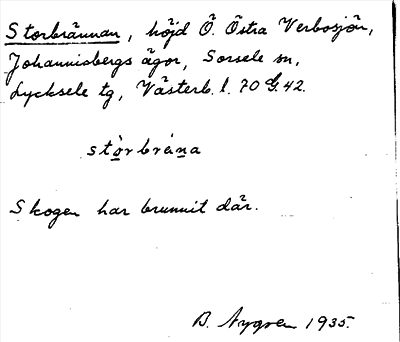 Storbrännan, höjd Ö. Östra Verbosjön,
Johannisbergs ägor, Sorsele sn,
Lycksele tg, Västerb. l. 70 G. 42.
stòrbrána
Skogen har brunnit där.
B. Nygren 1935.